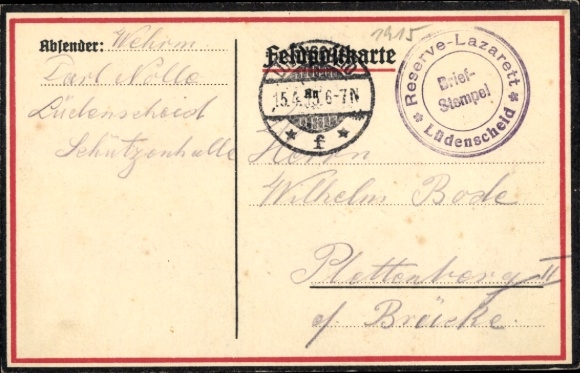 1915
Absender: Wehrm
Karl Nolle
Lüdenscheid
Schützenhalle
Feldpostkarte
15.4.15. 6-7N
* f *
Reserve-Lazarett
Brief-
Stempel
* Lüdenscheid *
Herrn
Wilhelm Bode
Plettenberg II
a/ Brücke